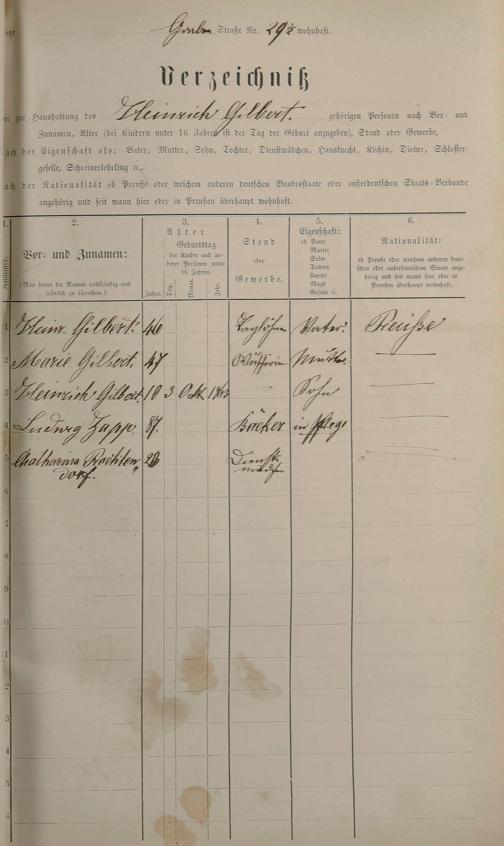 Graben Straße No. 29½ wohnhaft.
Verzeichniß
er zur Haushaltung des Heinrich Gilbert. gehörigen Personen nach Vor- und
Zunamen, Alter (bei Kindern unter 16 Jahren ist der Tag der Geburt anzugeben), Stand oder Gewerbe,
ach der Eigenschaft als: Vater, Mutter, Sohn, Tochter, Dienstmädchen, Hausknecht, Köchin, Diener, Schlosser-
geselle, Schreinerlehrling ꝛc.,
ach der Nationalität ob Preuße oder welchem anderen deutschen Bundesstaate oder außerdeutschen Staats-Verbande
angehörig und seit wann hier oder in Preußen überhaupt wohnhaft.
1. 2. 3. 4. 5. 6.
Nummer.
Vor- und Zunamen:
(Man bittet die Namen vollständig und
leserlich zu schreiben.)
Alter
Geburtstag
der Kinder und an-
derer Personen unter
16 Jahren.
Jahre. Tag. Monat. Jahr.
Stand
oder
Gewerbe.
Eigenschaft:
ob Vater
Mutter
Sohn
Tochter
Kunde
Magd
Geselle ꝛc.
Nationalität:
ob Preuße oder welchem anderen deut-
schen oder außerdeutschen Staate ange-
hörig und seit wann hier oder in
Preußen überhaupt wohnhaft.
1 Heinr. Gilbert. 46 Taglöhner Vater. Preuße
2 Marie Gilbert. 47 Mutter
3 Heinrich Gilbert 10 3 Okt. 1863 Sohn
4 Ludwig Zapp. 87. Bäcker in Pflege
5 Chatharina 23 Dienst-
mädch
6
7
8
9
0
1
2
3
4
5
6